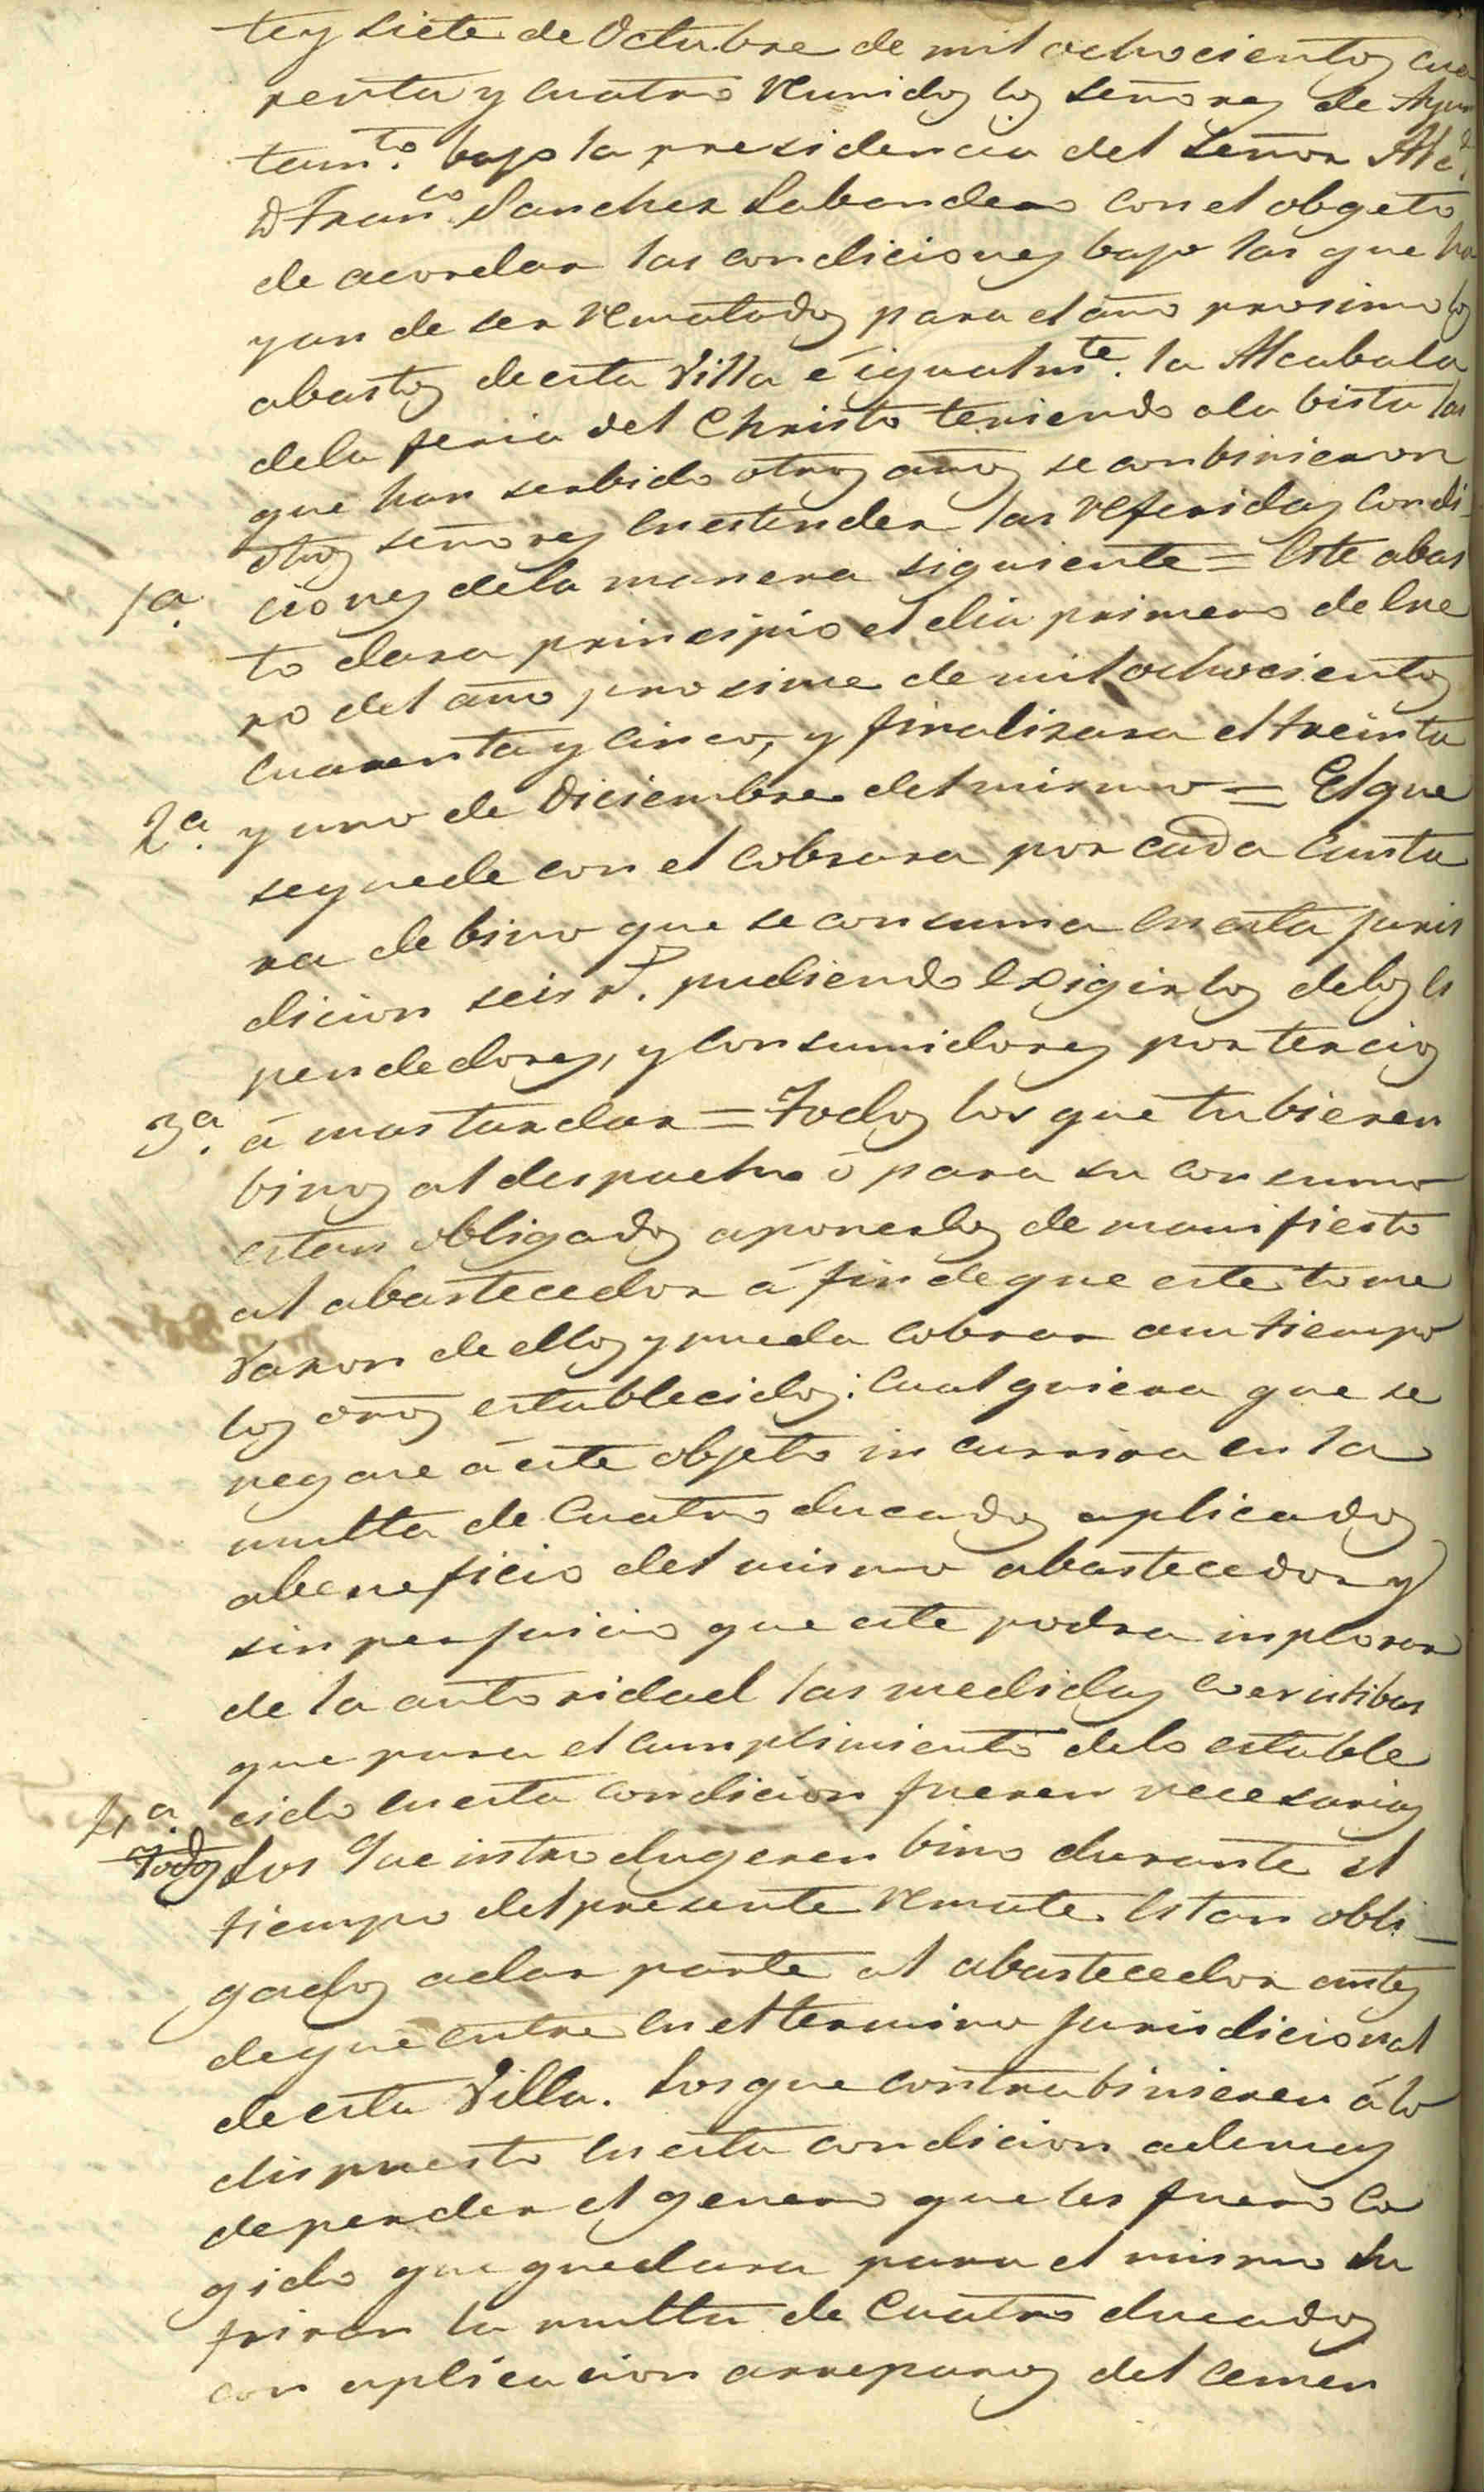 te y siete de Octubre de mil ochocientos cua
renta y cuatro reunidos los señores de Ayun
tamto. bajo la presidencia del Señor Alce.
D Franco Sanchez Labandero con el obgeto
de acordar las condiciones bajo las que ha
yan de ser rematados para el año prosimo los
abastos de esta Villa é igualmte. la Alcabala
dela feria del Christo teniendo ala bista las
que han serbido otros años se conbinieron
dhos señores en estender las referidas condi
1a. ciones dela manera siguiente = Este abas
to dara principio el dia primero de Ene
ro del año prosimo de mil ochocientos
cuarenta y cinco, y finalizara el treinta
2a. y uno de Diciembre del mismo = El que
se quede con el cobrara por cada canta
ra de bino que se consuma en esta juris
dicion seis rs. pudiendo exigirlos delos es
pendedores, y consumidores por tercios
3a. á mas tardar = Todos los que tubieren
binos al despacho ó para su consumo
estan obligados aponerlos de manifiesto
al abastecedor á fin de que este tome
razon de ellos y pueda cobrar asu tiempo
los drôs establecidos: Cualquiera que se
negare á este objeto incurrira en la
multa de cuatro ducados aplicados
abeneficio del mismo abastecedor y
sin perjuicio que este podra inplorar
de la autoridad las medidas coercitibas
que para el cumplimiento delo estable
4a. cido en esta condicion fueren necesarias
Todos Los que introdugeren bino durante el
tiempo del presente remate estan obli
gados adar parte al abastecedor antes
de que entre en el termino jurisdicional
de esta Villa. Los que contrabinieren á lo
dispuesto en esta condicion ademas
de perder el genero que les fuere co
gido que quedara para el mismo su
friran la multa de cuatro ducados
con aplicacion arreparos del cemen